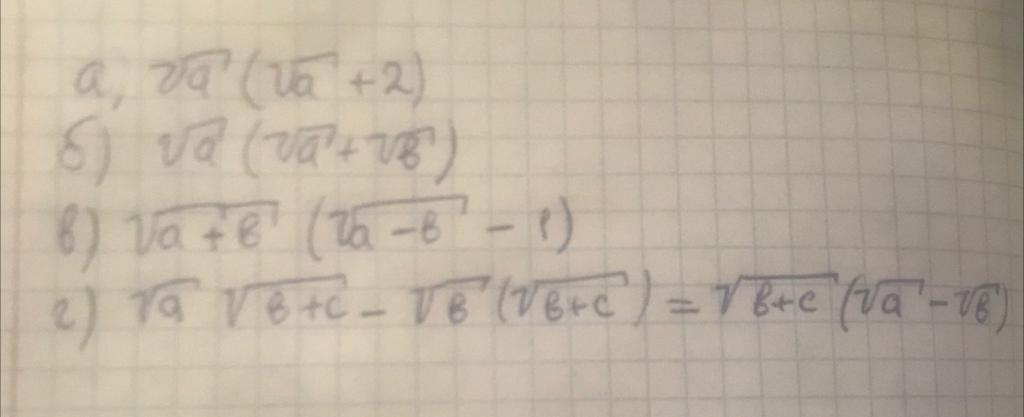 а, √a (√a + 2)
б) √a (√a + √в)
в) √a + в (√a − в − 1)
г) √a √в+c − √в (√в+c) = √в+c (√a − √в)